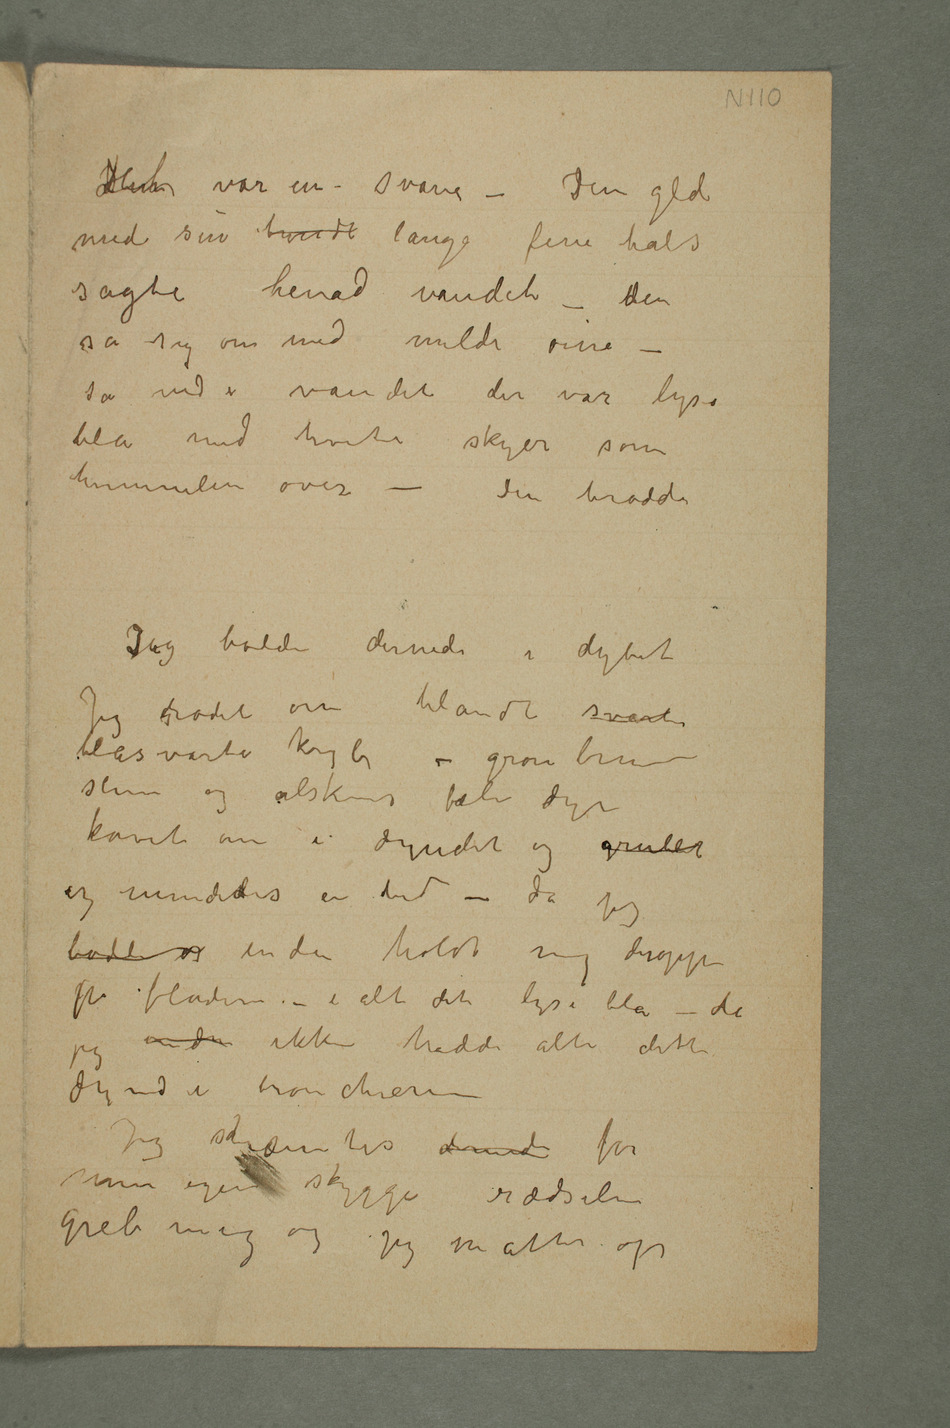 N110
Der var en svane – Den gled
med sin hvide lange fine hals
sagte henad vandet – den
sa sig om med milde øine –
sa ned i vandet der var lyse
bla med hvite skyer som
himmelen over – Den trodde
Jeg bodde dernede i dybet
Jeg rodet om blandt svarte
blasvarte kryb – grønbrun
slim og alskens fæle dyr
kavet om i dyndet og
og mindedes en tid – da jeg
bodde endnu holdt mig deroppe
pa fladen – i alt det lyse bla – da
jeg endnu ikke hadde alt dette
dynd i bronchierne
Jeg skræmtes dernede for
min egen skygge rædselen
greb meg og jeg matte op